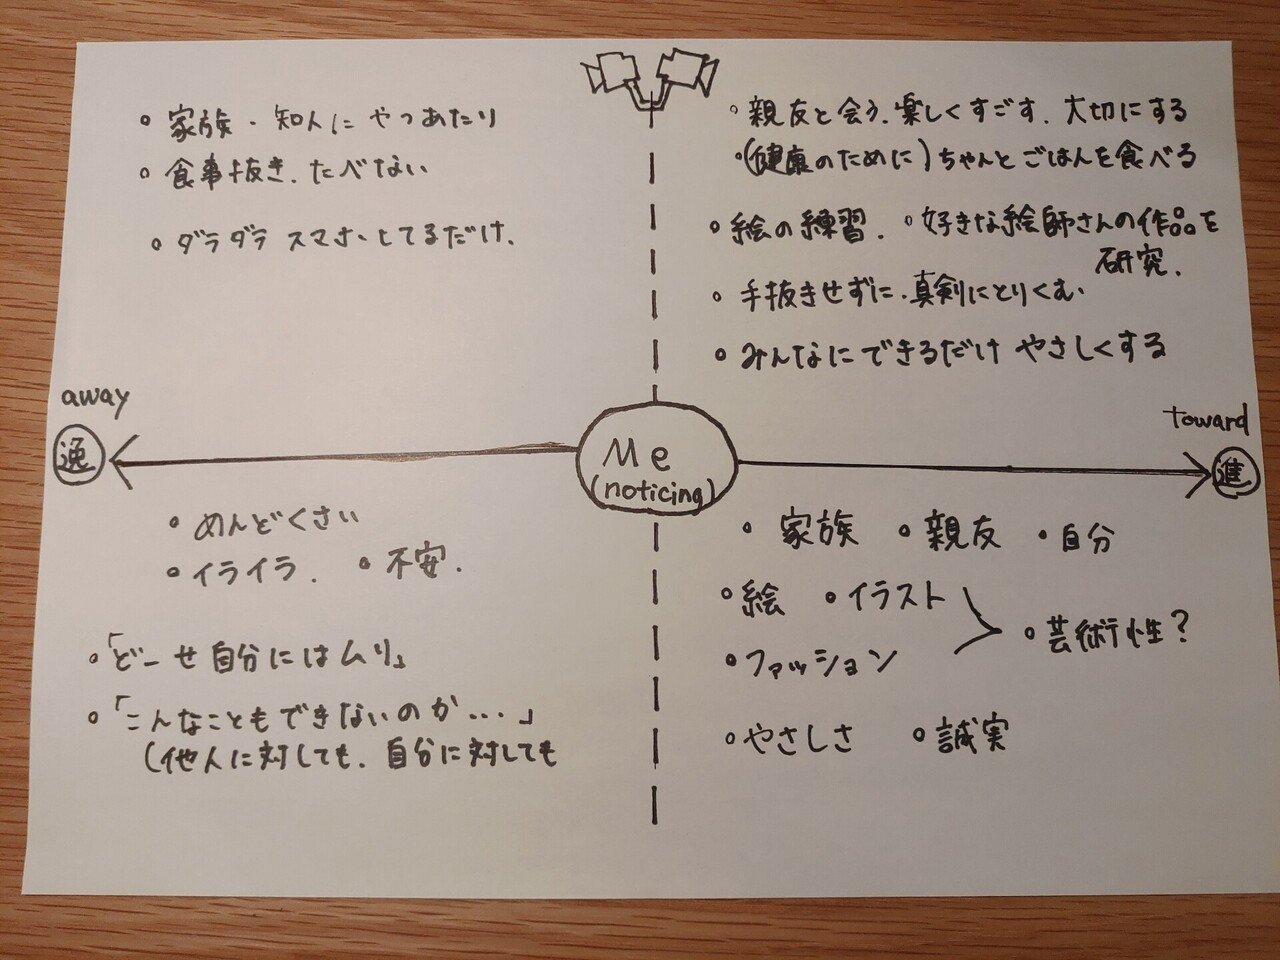 • 家族・知人にやつあたり
• 食事抜き、たべない
• ダラダラスマホしてるだけ、
• 親友と会う、楽しくすごす、大切にする
•(健康のために)ちゃんとごはんを食べる
• 絵の練習、 • 好きな絵師さんの作品を
研究、
• 手抜きせずに、真剣にとりくむ
• みんなにできるだけやさしくする
away
逸
Me
(noticing)
toward
進
• めんどくさい
• イライラ、 • 不安、
• 「どーせ自分にはムリ」
• 「こんなこともできないのか・・・」
(他人に対しても、自分に対しても
• 家族 • 親友 • 自分
• 絵 • イラスト
• 芸術性?
• ファッション
• やさしさ • 誠実